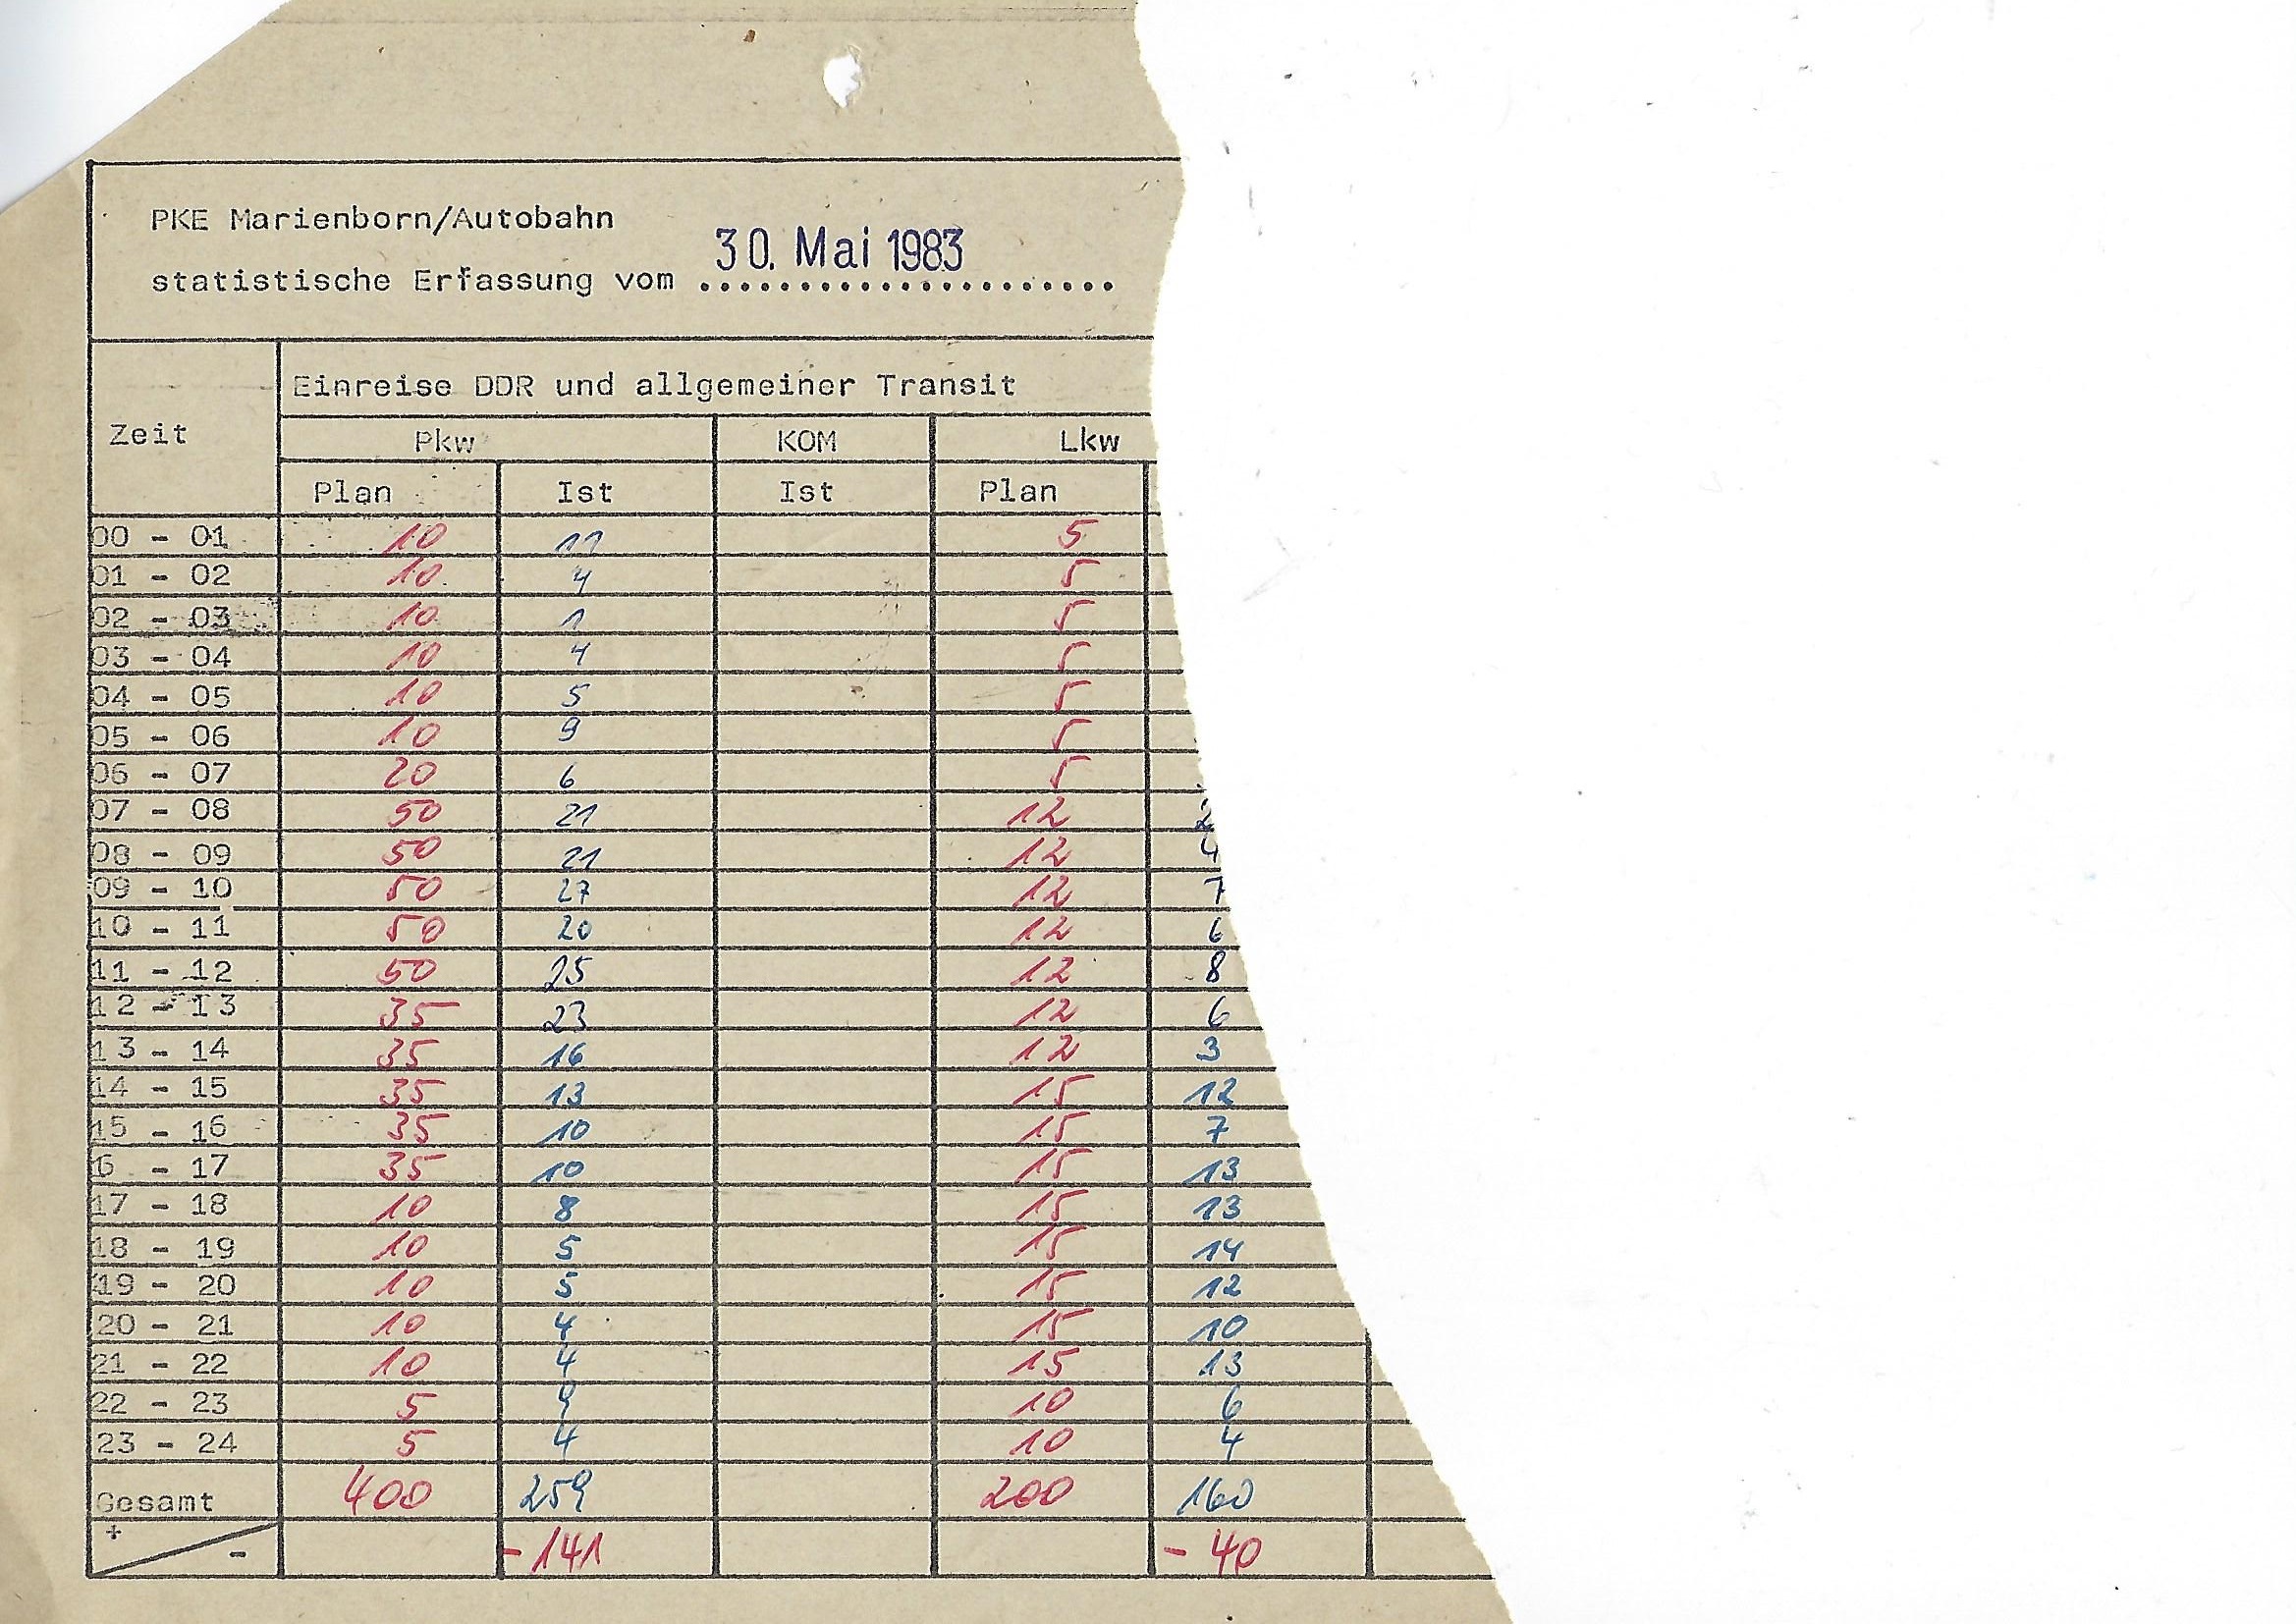 PKE Marienborn/Autobahn
30. Mai 1983
statistische Erfassung vom ......................
Einreise DDR und allgemeiner Transit
Zeit Pkw KOM Lkw
Plan Ist Ist Plan
00 - 01 10 11 5
01 - 02 10 4 5
02 - 03 10 1 5
03 - 04 10 4 5
04 - 05 10 5 5
05 - 06 10 9 5
06 - 07 20 6 5
07 - 08 50 21 12 2
08 - 09 50 21 12 4
09 - 10 50 27 12 7
10 - 11 50 20 12 6
11 - 12 50 25 12 8
12 - 13 35 23 12 6
13 - 14 35 16 12 3
14 - 15 35 13 15 12
15 - 16 35 10 15 7
6 - 17 35 10 15 13
17 - 18 10 8 15 13
18 - 19 10 5 15 14
19 - 20 10 5 15 12
20 - 21 10 4 15 10
21 - 22 10 4 15 13
22 - 23 5 9 10 6
23 - 24 5 4 10 4
Gesamt 400 259 200 160
+ - -141 - 40